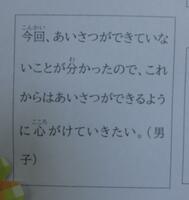 今回、あいさつができていな
いことが分かったので、これ
からはあいさつができるよう
に心がけていきたい。（男
子）